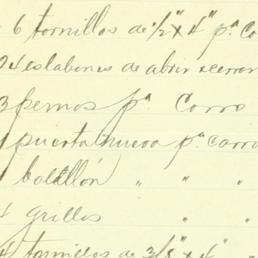 6 tornillos de 1/2" x 4" pª Co
04 eslabones de abrir i cerrar
3 pernos pª Carro
1 puerta nueva pª carro
1 botallón " " "
4 grillos " "
4 tornillos de 3/8" x 4" "